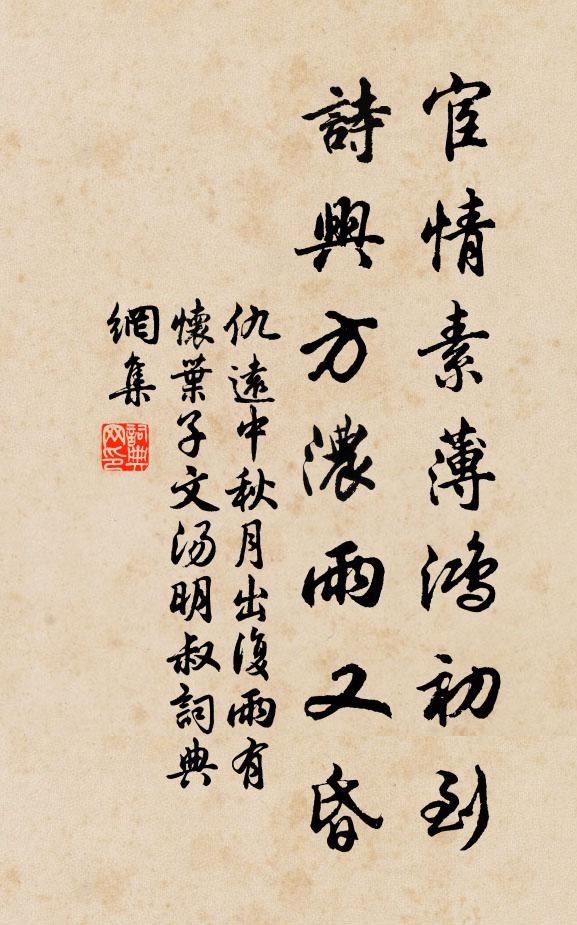 宦情素薄鴻初到
詩興方濃雨又昏
仇遠中秋月出復雨有
懷葉子文汤明叔詞典
網集
詞典
网印